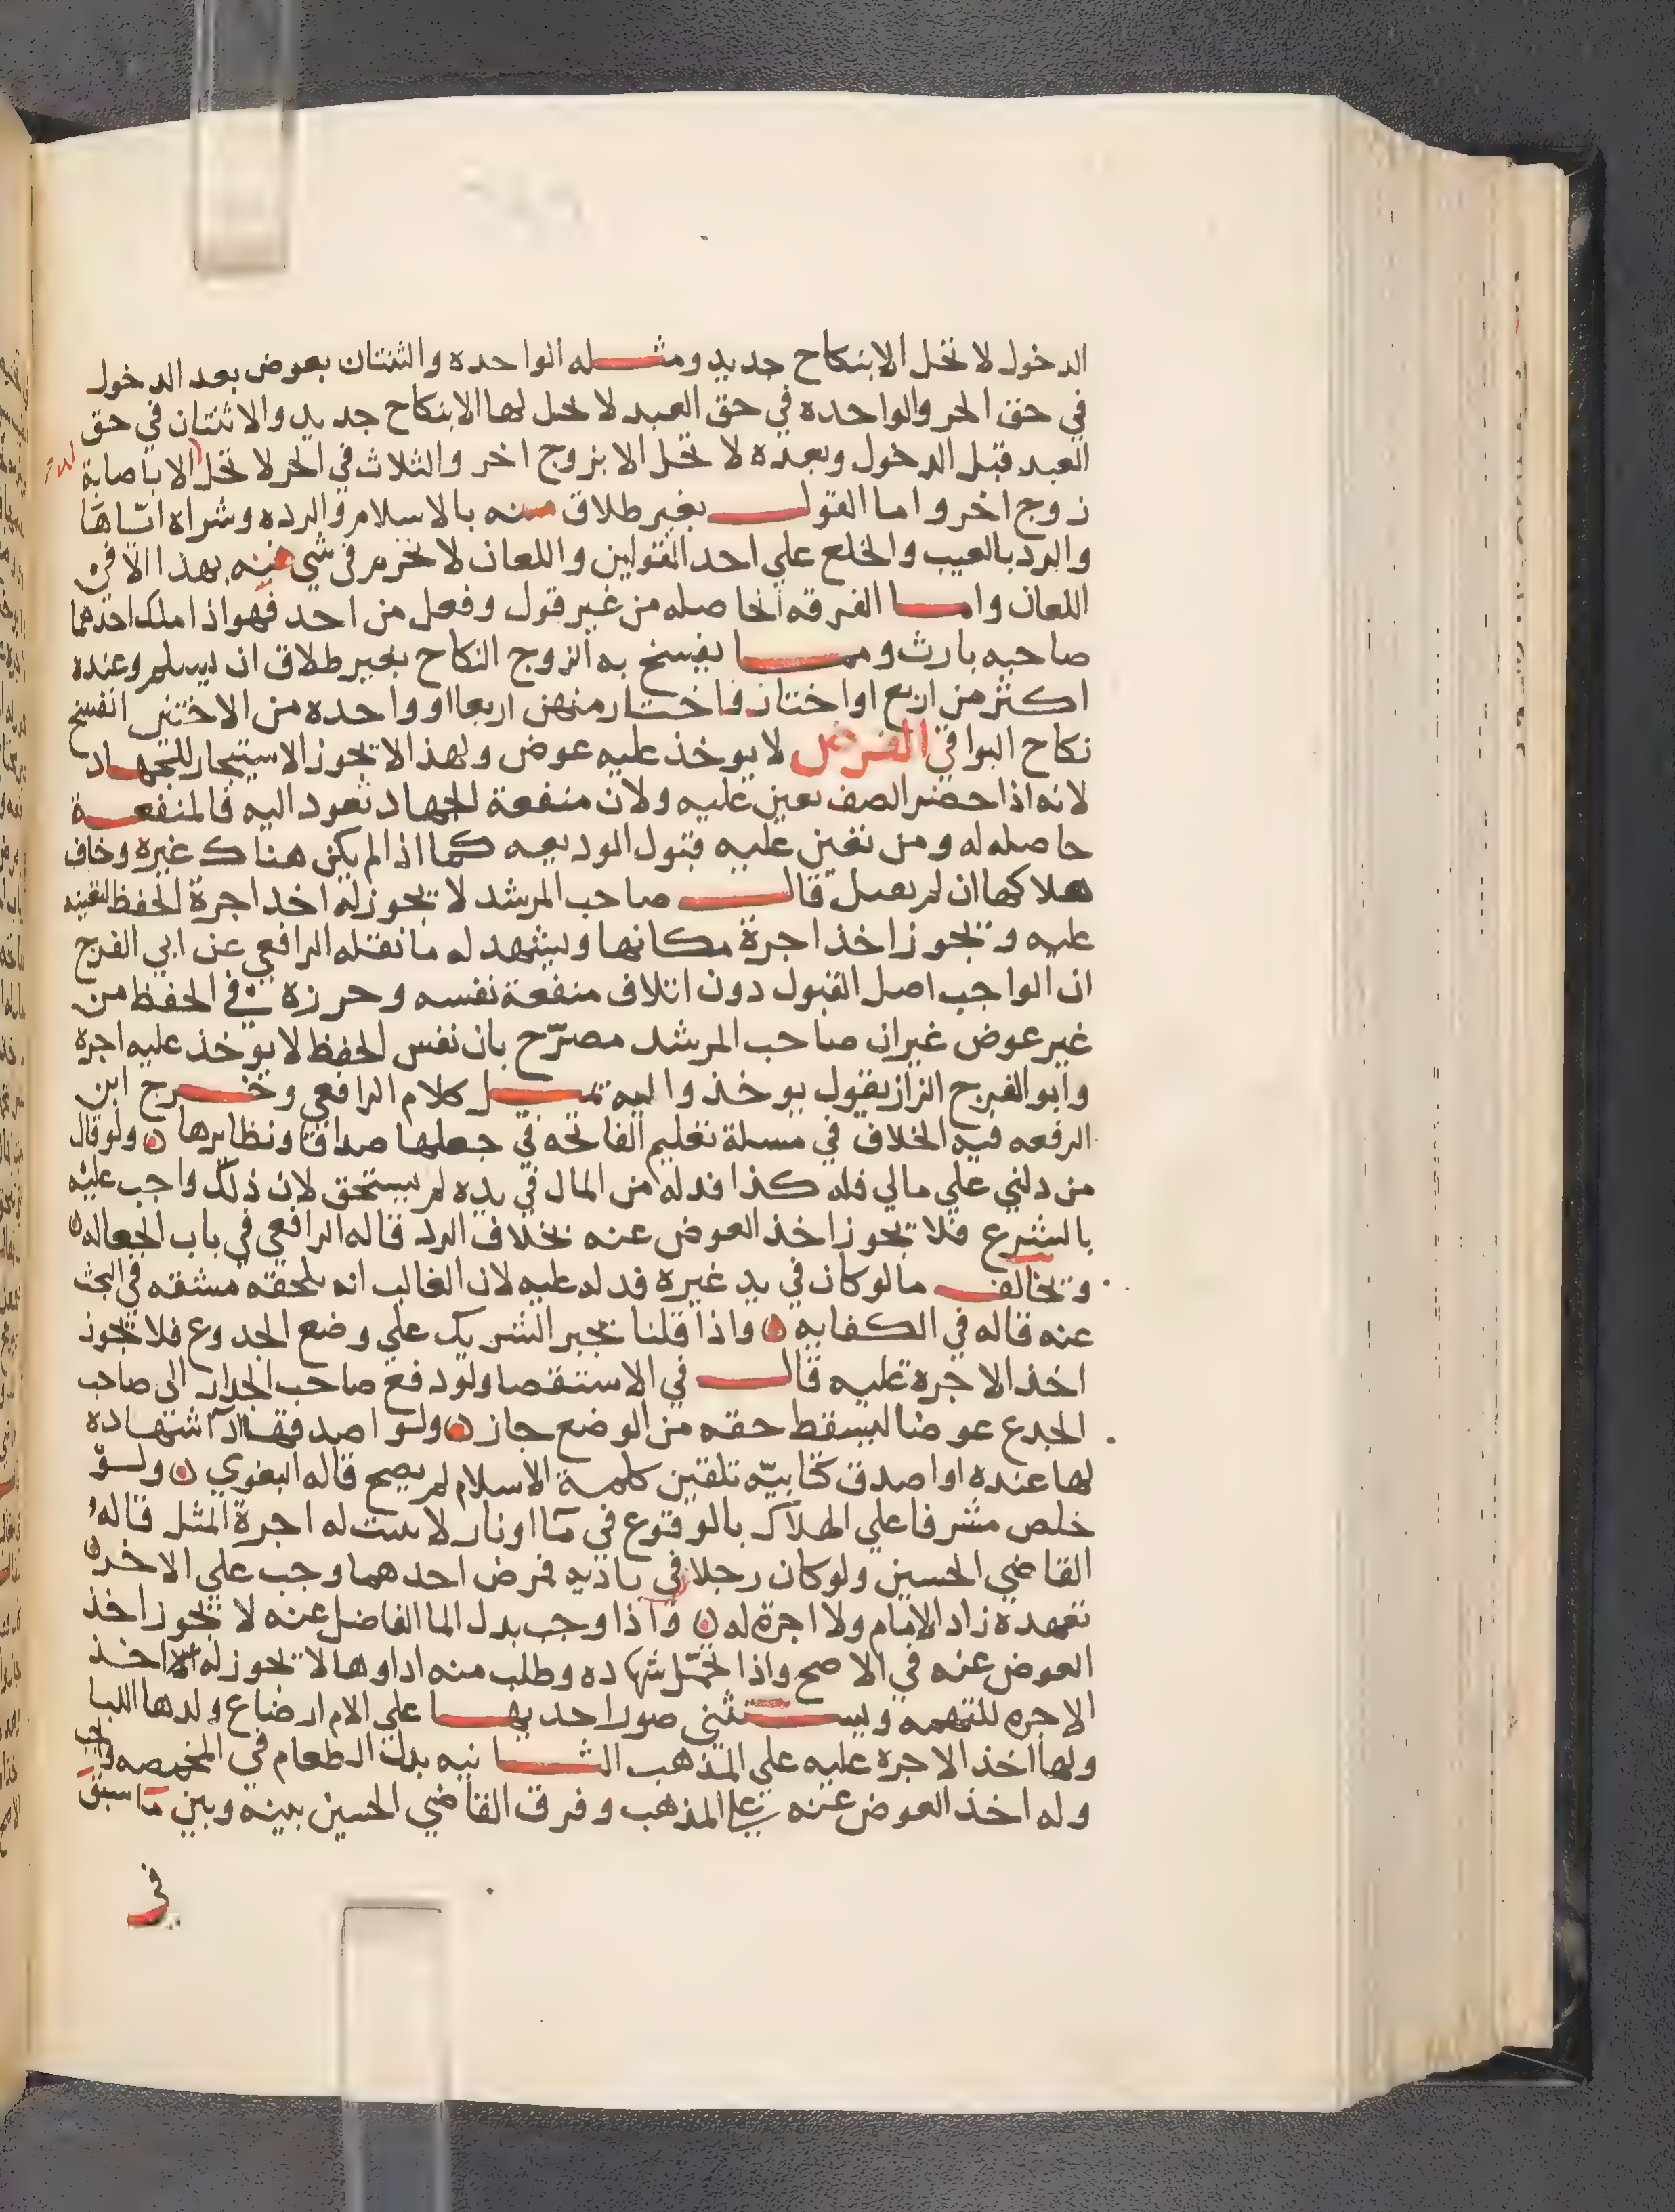 الدخول لا تحل الا بنكاح جديد ومثله الواحده والثنتان بعوض بعد الدخول
في حق الحر والواحده في حق العبد لا تحل لها الا بنكاح جديد والاثنتان في حق
العبد قبل الدخول وبعده لا تحل الا بزوج اخر والثلاث في الحر لا تحل الا باصابة
زوج اخر واما القول بغير طلاق منه بالاسلام والرده وشراه اياها
والرد بالعيب والخلع علي احد القولين واللعان لا تحرم في شي منه بهذا الا في
اللعان واما الفرقه الحاصله من غير قول وفعل من احد فهو اذا ملك احدهما
صاحبه بارث ومما يفسخ به الزوج النكاح بغير طلاق ان يسلم وعنده
اكثر من اربع او اختان فاختار منهن اربعا او واحده من الاختين انفسخ
نكاح البواقي الفرض لا يوخذ عليه عوض ولهذا لا يجوز الاستيجار للجهاد
لانه اذا حضر الصف تعين عليه ولان منفعة الجهاد تعود اليه فالمنفعة
حاصله له ومن تعين عليه قبول الوديعه كما اذا لم يكن هناك غيره وخاف
هلاكها ان لم يقبل قال صاحب المرشد لا يجوز له اخذ اجرة الحفظ لتعينه
عليه ويجوز اخذ اجرة مكانها ويشهد له ما نقله الرافعي عن ابي الفرج
ان الواجب اصل القبول دون اتلاف منفعة نفسه وحرزه في الحفظ من
غير عوض غير ان صاحب المرشد مصرّح بان نفس الحفظ لا يوخذ عليه اجرة
وابو الفرج الزاز يقول يوخذ واليه يميل كلام الرافعي وخرج ابن
الرفعه فيه الخلاف في مسلة تعليم الفاتحه في جعلها صداقا ونظايرها ولو قال
من دلني علي مالي فله كذا فدله من المال في يده لم يستحق لان ذلك واجب عليه
بالشرع فلا يجوز اخذ العوض عنه بخلاف الرد قاله الرافعي في باب الجعاله
ويخالف ما لو كان في يد غيره فدله عليه لان الغالب انه يلحقه مشقه في البحث
عنه قاله في الكفايه واذا قلنا يجبر الشريك علي وضع الجدوع فلا يجوز
اخذ الاجرة عليه قال في الاستقصا ولو دفع صاحب الجدار الى صاحب
الجدع عوضا ليسقط حقه من الوضع جاز ولو اصدقها اداشهاده
لها عنده او اصدق كتابيّه تلقين كلمة الاسلام لم يصح قاله البغوي ولو
خلص مشرفا علي الهلاك بالوقوع في ما او نار لا يثبت له اجرة المثل قاله
القاضي الحسين ولو كان رجلان في بادية فمرض احدهما وجب علي الاخر
تعهده زاد الامام ولا اجرة له واذا وجب بدل الما الفاضل عنه لا يجوز اخذ
العوض عنه في الاصح واذا تحمّل شهاده وطلب منه اداوها لا يجوز له اخذ
الاجره للتهمه ويستثني صور احديها علي الام ارضاع ولدها اللبا
ولها اخذ الاجره عليه علي المذهب الثانيه بدل الطعام في المخمصه واجب
وله اخذ العوض عنه علي المذهب وفرق القاضي الحسين بينه وبين ما سبق
في